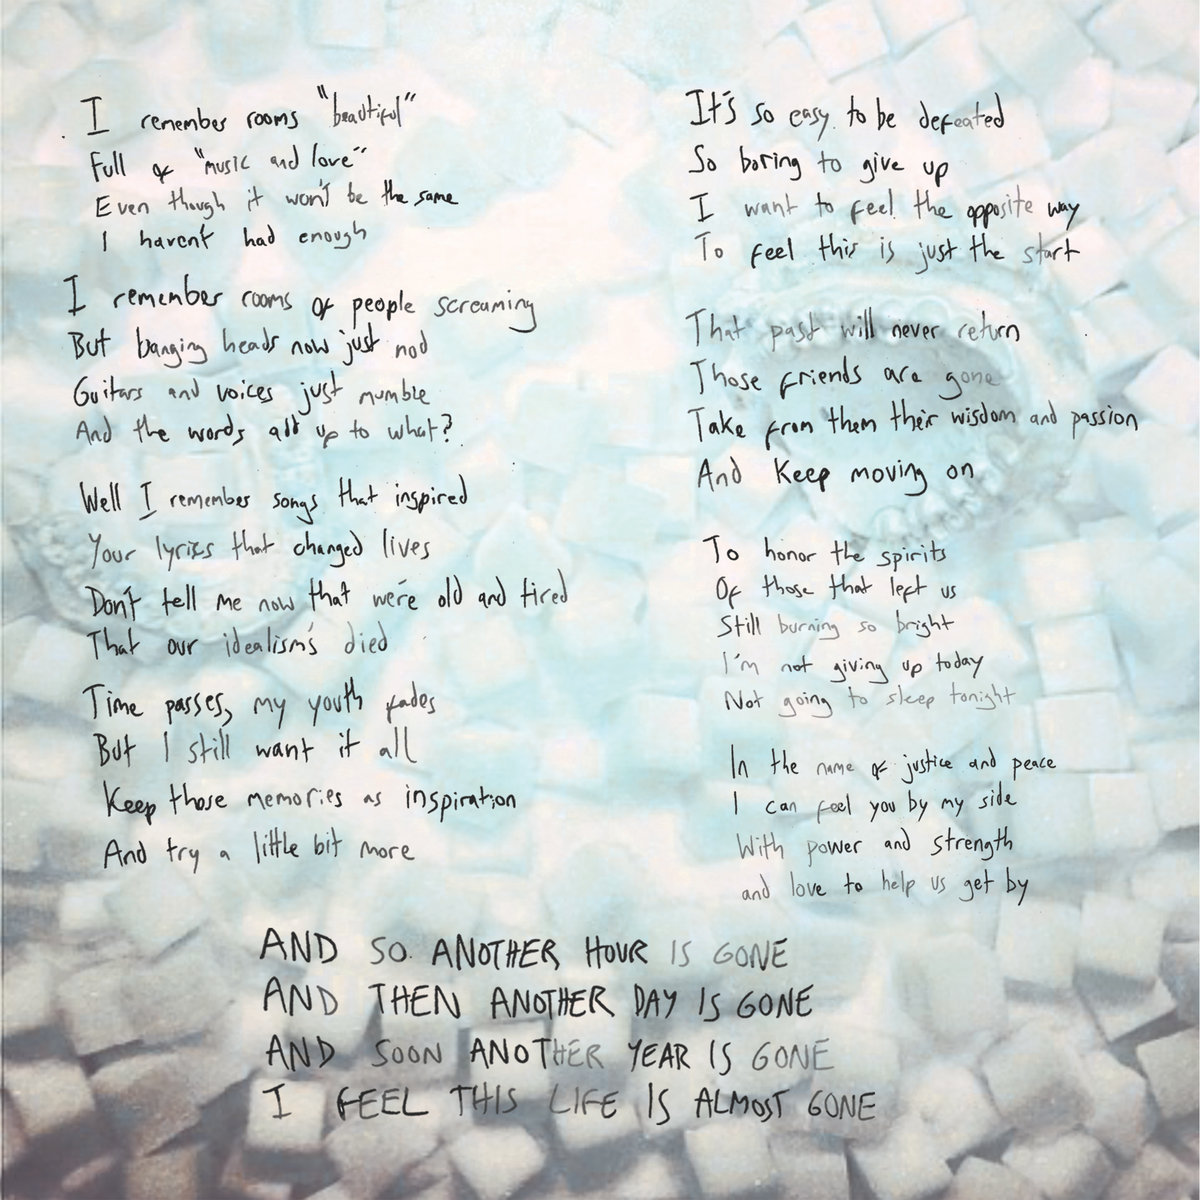 I remember rooms "beautiful"
Full of "music and love"
Even though it won't be the same
I haven't had enough
I remember rooms of people screaming
But banging heads now just nod
Guitars and voices just mumble
And the words add up to what?
Well I remember songs that inspired
Your lyrics that changed lives
Don't tell me now that we're old and tired
That our idealism's died
Time passes, my youth fades
But I still want it all
Keep those memories as inspiration
And try a little bit more
It's so easy to be defeated
So boring to give up
I want to feel the opposite way
To feel this is just the start
That past will never return
Those friends are gone
Take from them their wisdom and passion
And keep moving on
To honor the spirits
Of those that left us
Still burning so bright
I'm not giving up today
Not going to sleep tonight
In the name of justice and peace
I can feel you by my side
With power and strength
and love to help us get by
AND SO ANOTHER HOUR IS GONE
AND THEN ANOTHER DAY IS GONE
AND SOON ANOTHER YEAR IS GONE
I FEEL THIS LIFE IS ALMOST GONE